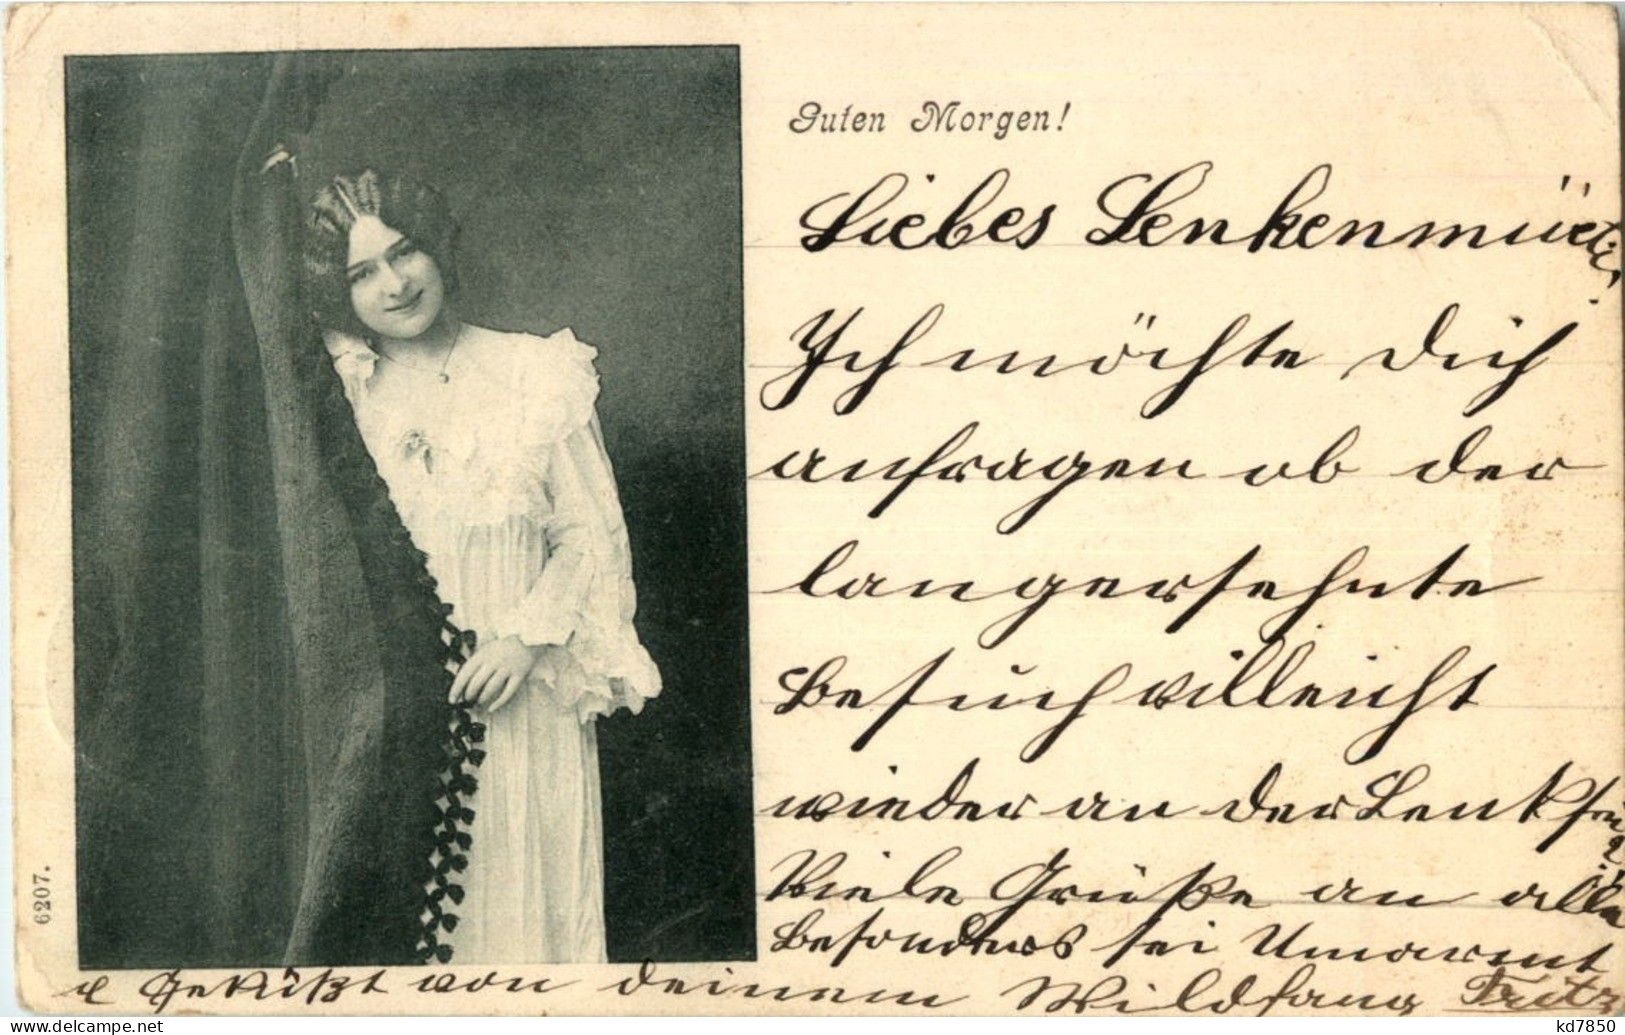 Guten Morgen!
Liebes Lenkenmüetti!
Ich möchte Dich
anfragen ob der
langersehnte
Besuch villeicht
wieder an der Lenk sei?
Viele Grüße an alle
Besonders sei Umarmt
& Geküßt von deinem Wildfang Fritz
6207.
kd7850